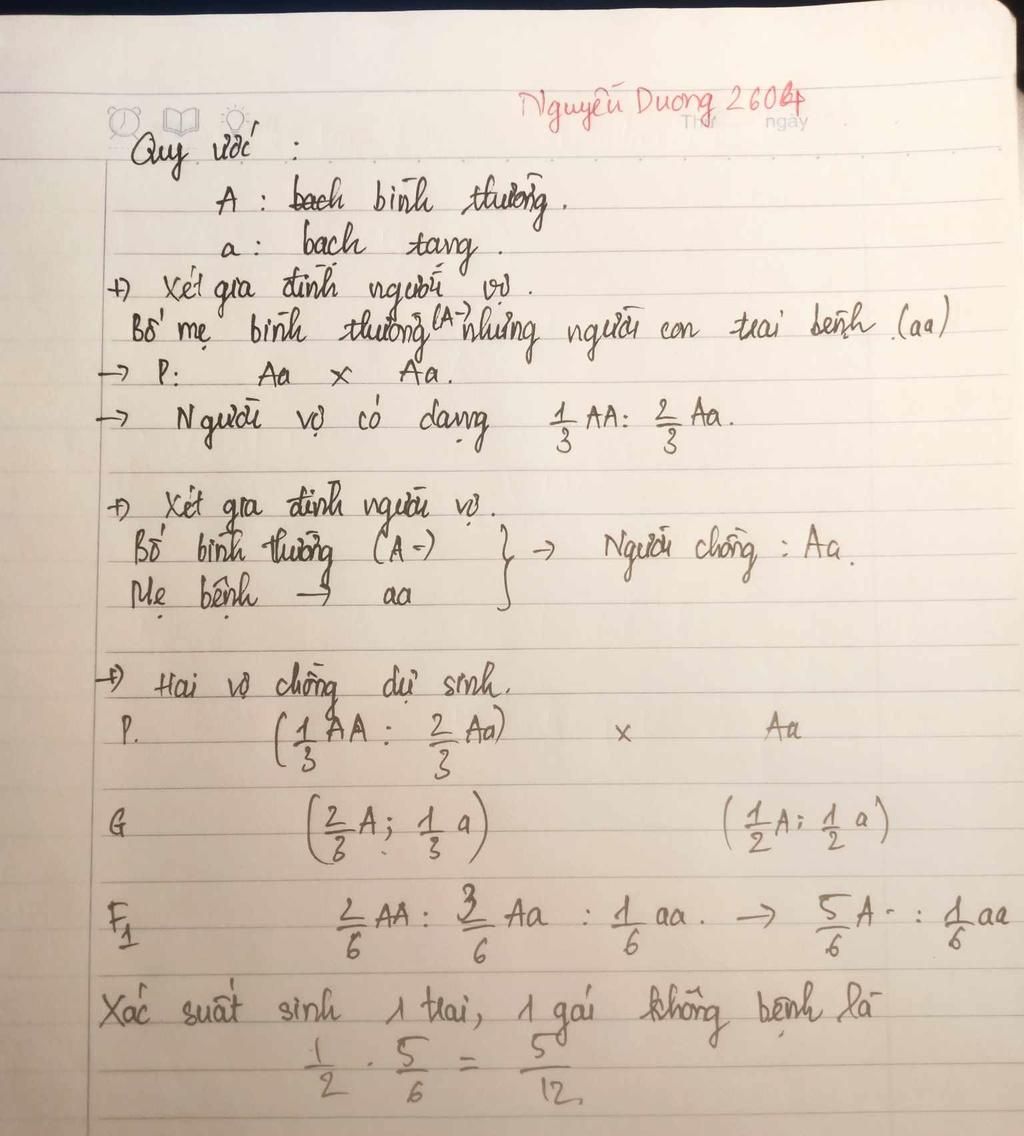 Nguyễn Dương 2604
Thứ ngày
Quy ước :
A : bach bình thường.
a : bạch tạng.
+) Xét gia đình người vợ.
Bố mẹ bình thường (A-) nhưng người con trai bệnh (aa)
→ P: Aa x Aa.
→ Người vợ có dạng 1/3 AA : 2/3 Aa.
+) Xét gia đình người vợ.
Bố bình thường (A-) } → Người chồng : Aa.
Mẹ bệnh → aa
+) Hai vợ chồng dự sinh.
P. (1/3 AA : 2/3 Aa) x Aa
G (2/3 A; 1/3 a) (1/2 A; 1/2 a)
F1 2/6 AA : 3/6 Aa : 1/6 aa. → 5/6 A- : 1/6 aa
Xác suất sinh 1 trai, 1 gái không bệnh là
1/2 . 5/6 = 5/12.